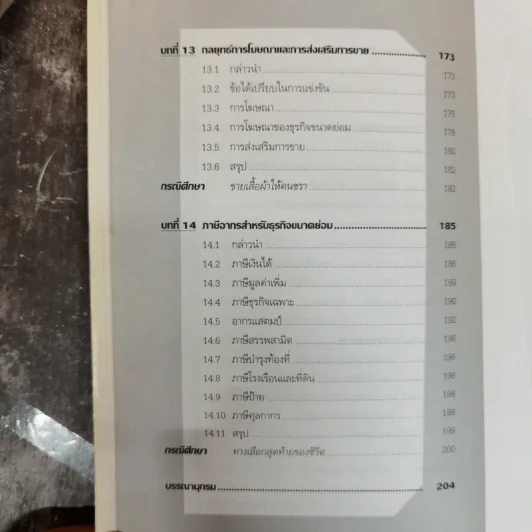 บทที่ 13 กลยุทธ์การโฆษณาและการส่งเสริมการขาย 173
13.1 กล่าวนำ 173
13.2 ข้อได้เปรียบในการแข่งขัน 173
13.3 การโฆษณา 176
13.4 การโฆษณาของธุรกิจขนาดย่อม 178
13.5 การส่งเสริมการขาย
13.6 สรุป 182
กรณีศึกษา ขายเสื้อผ้าให้คนชรา 183
บทที่ 14 ภาษีอากรสำหรับธุรกิจขนาดย่อม 185
14.1 กล่าวนำ 185
14.2 ภาษีเงินได้ 186
14.3 ภาษีมูลค่าเพิ่ม 189
14.4 ภาษีธุรกิจเฉพาะ 190
14.5 อากรแสตมป์ 192
14.6 ภาษีสรรพสามิต 196
14.7 ภาษีบำรุงท้องที่ 196
14.8 ภาษีโรงเรือนและที่ดิน 198
14.9 ภาษีป้าย 198
14.10 ภาษีศุลกากร 199
14.11 สรุป 199
กรณีศึกษา ทางเลือกสุดท้ายของชีวิต 200
บรรณานุกรม 204